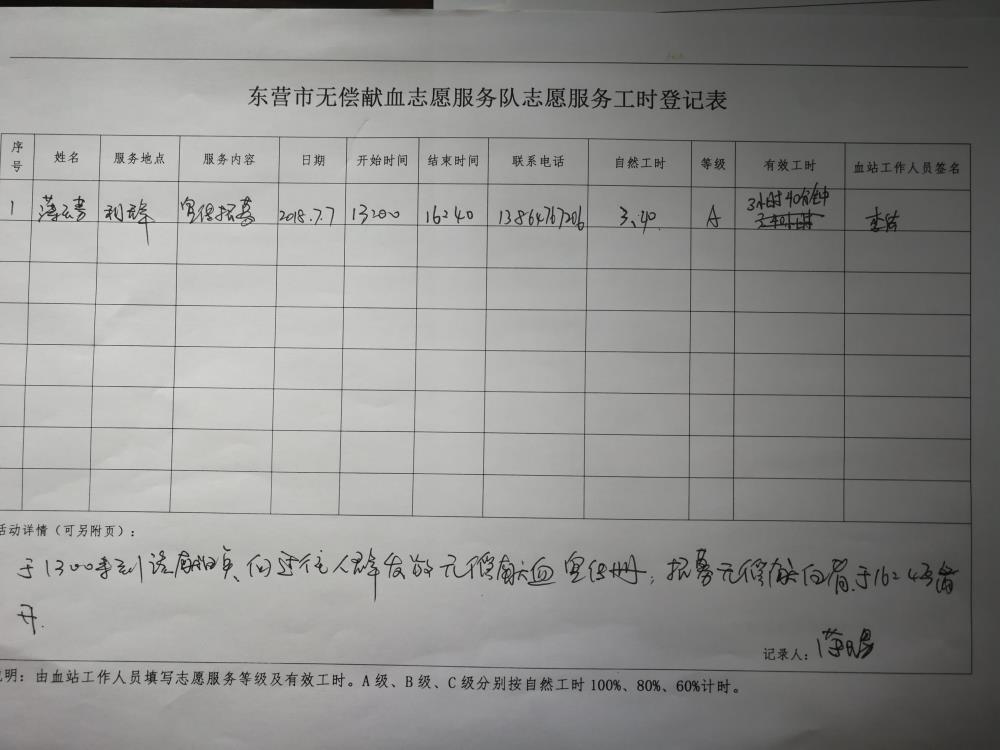 东营市无偿献血志愿服务队志愿服务工时登记表
序号 姓名 服务地点 服务内容 日期 开始时间 结束时间 联系电话 自然工时 等级 有效工时 血站工作人员签名
3小时40分钟
1 利群 宣传招募 2018.7.7 13:00 16:40 13864767206 3.40 A 李
活动详情(可另附页):
于13:00来到 献血 向过往人群发放无偿献血宣传册,招募无偿献血者,于16:40离
开.
记录人:薄
说明:由血站工作人员填写志愿服务等级及有效工时。A级、B级、C级分别按自然工时100%、80%、60%计时。